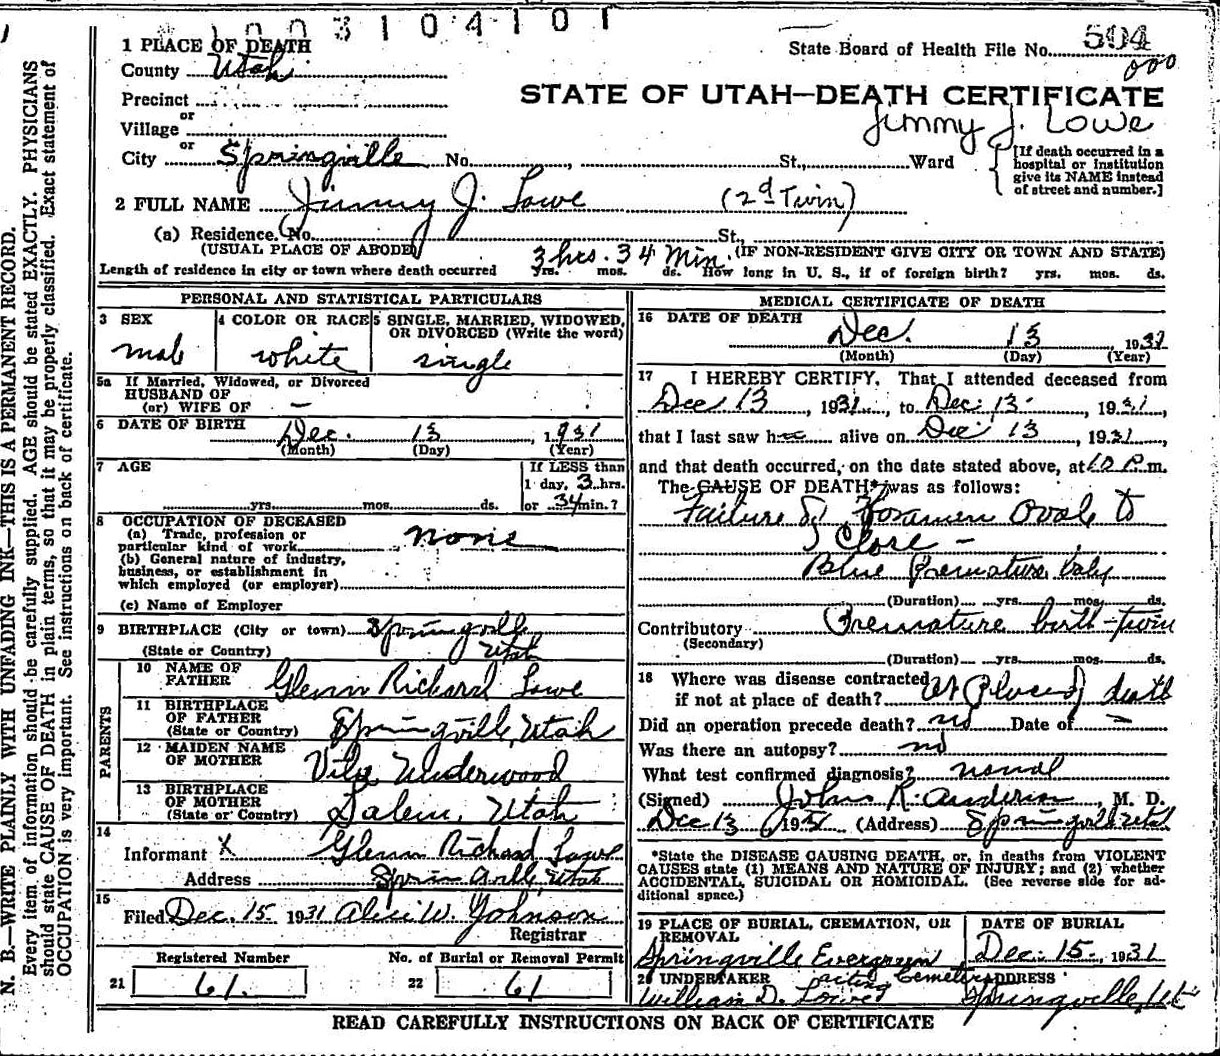 1003104101
1 PLACE OF DEATH
State Board of Health File No. 504
000
County Utah
STATE OF UTAH—DEATH CERTIFICATE
Precinct
or
Jimmy J. Lowe
Village
or
City Springville No. , St., Ward
[If death occurred in a hospital or institution give its NAME instead of street and number.]
2 FULL NAME Jimmy J. Lowe (2d Twin)
(a) Residence. No. St.,
(USUAL PLACE OF ABODE) (IF NON-RESIDENT GIVE CITY OR TOWN AND STATE)
3 hrs. 34 Min.
Length of residence in city or town where death occurred yrs. mos. ds. How long in U. S., if of foreign birth? yrs. mos. ds.
PERSONAL AND STATISTICAL PARTICULARS
3 SEX
male
4 COLOR OR RACE
white
5 SINGLE, MARRIED, WIDOWED, OR DIVORCED (Write the word)
single
5a If Married, Widowed, or Divorced
HUSBAND OF
(or) WIFE OF —
6 DATE OF BIRTH Dec. 13, 1931
(Month) (Day) (Year)
7 AGE
yrs. mos. ds.
If LESS than
1 day, 3 hrs.
or 34 min.?
8 OCCUPATION OF DECEASED
(a) Trade, profession or
particular kind of work none
(b) General nature of industry,
business, or establishment in
which employed (or employer)
(c) Name of Employer
9 BIRTHPLACE (City or town) Springville
(State or Country) Utah
PARENTS
10 NAME OF FATHER Glenn Richard Lowe
11 BIRTHPLACE OF FATHER (State or Country) Springville, Utah
12 MAIDEN NAME OF MOTHER Underwood
13 BIRTHPLACE OF MOTHER (State or Country) Salem, Utah
14
Informant X Glenn Richard Lowe
Address Springville, Utah
15
Filed Dec. 15 1931 Alice W. Johnson
Registrar
Registered Number
21 61.
No. of Burial or Removal Permit
22 61
MEDICAL CERTIFICATE OF DEATH
16 DATE OF DEATH
Dec. 13, 1931
(Month) (Day) (Year)
17 I HEREBY CERTIFY, That I attended deceased from
Dec 13, 1931, to Dec. 13, 1931,
that I last saw h alive on Dec 13, 1931,
and that death occurred, on the date stated above, at P.m.
The CAUSE OF DEATH* was as follows:
Failure of Foramen Ovale to
Close —
Blue Premature baby
(Duration) yrs. mos. ds.
Contributory Premature birth - twin
(Secondary)
(Duration) yrs. mos. ds.
18 Where was disease contracted
if not at place of death? At Place of death
Did an operation precede death? no Date of —
Was there an autopsy? no
What test confirmed diagnosis? usual
(Signed) John R. Anderson, M. D.
Dec 13 1931 (Address) Springville Utah
*State the DISEASE CAUSING DEATH, or, in deaths from VIOLENT
CAUSES state (1) MEANS AND NATURE OF INJURY; and (2) whether
ACCIDENTAL, SUICIDAL OR HOMICIDAL. (See reverse side for ad-
ditional space.)
19 PLACE OF BURIAL, CREMATION, OR REMOVAL
Springville Evergreen Cemetery
DATE OF BURIAL
Dec. 15, 1931
20 UNDERTAKER acting
William D.
ADDRESS
Springville, Ut
READ CAREFULLY INSTRUCTIONS ON BACK OF CERTIFICATE
N. B.—WRITE PLAINLY WITH UNFADING INK—THIS IS A PERMANENT RECORD.
Every item of information should be carefully supplied. AGE should be stated EXACTLY. PHYSICIANS
should state CAUSE OF DEATH in plain terms, so that it may be properly classified. Exact statement of
OCCUPATION is very important. See instructions on back of certificate.